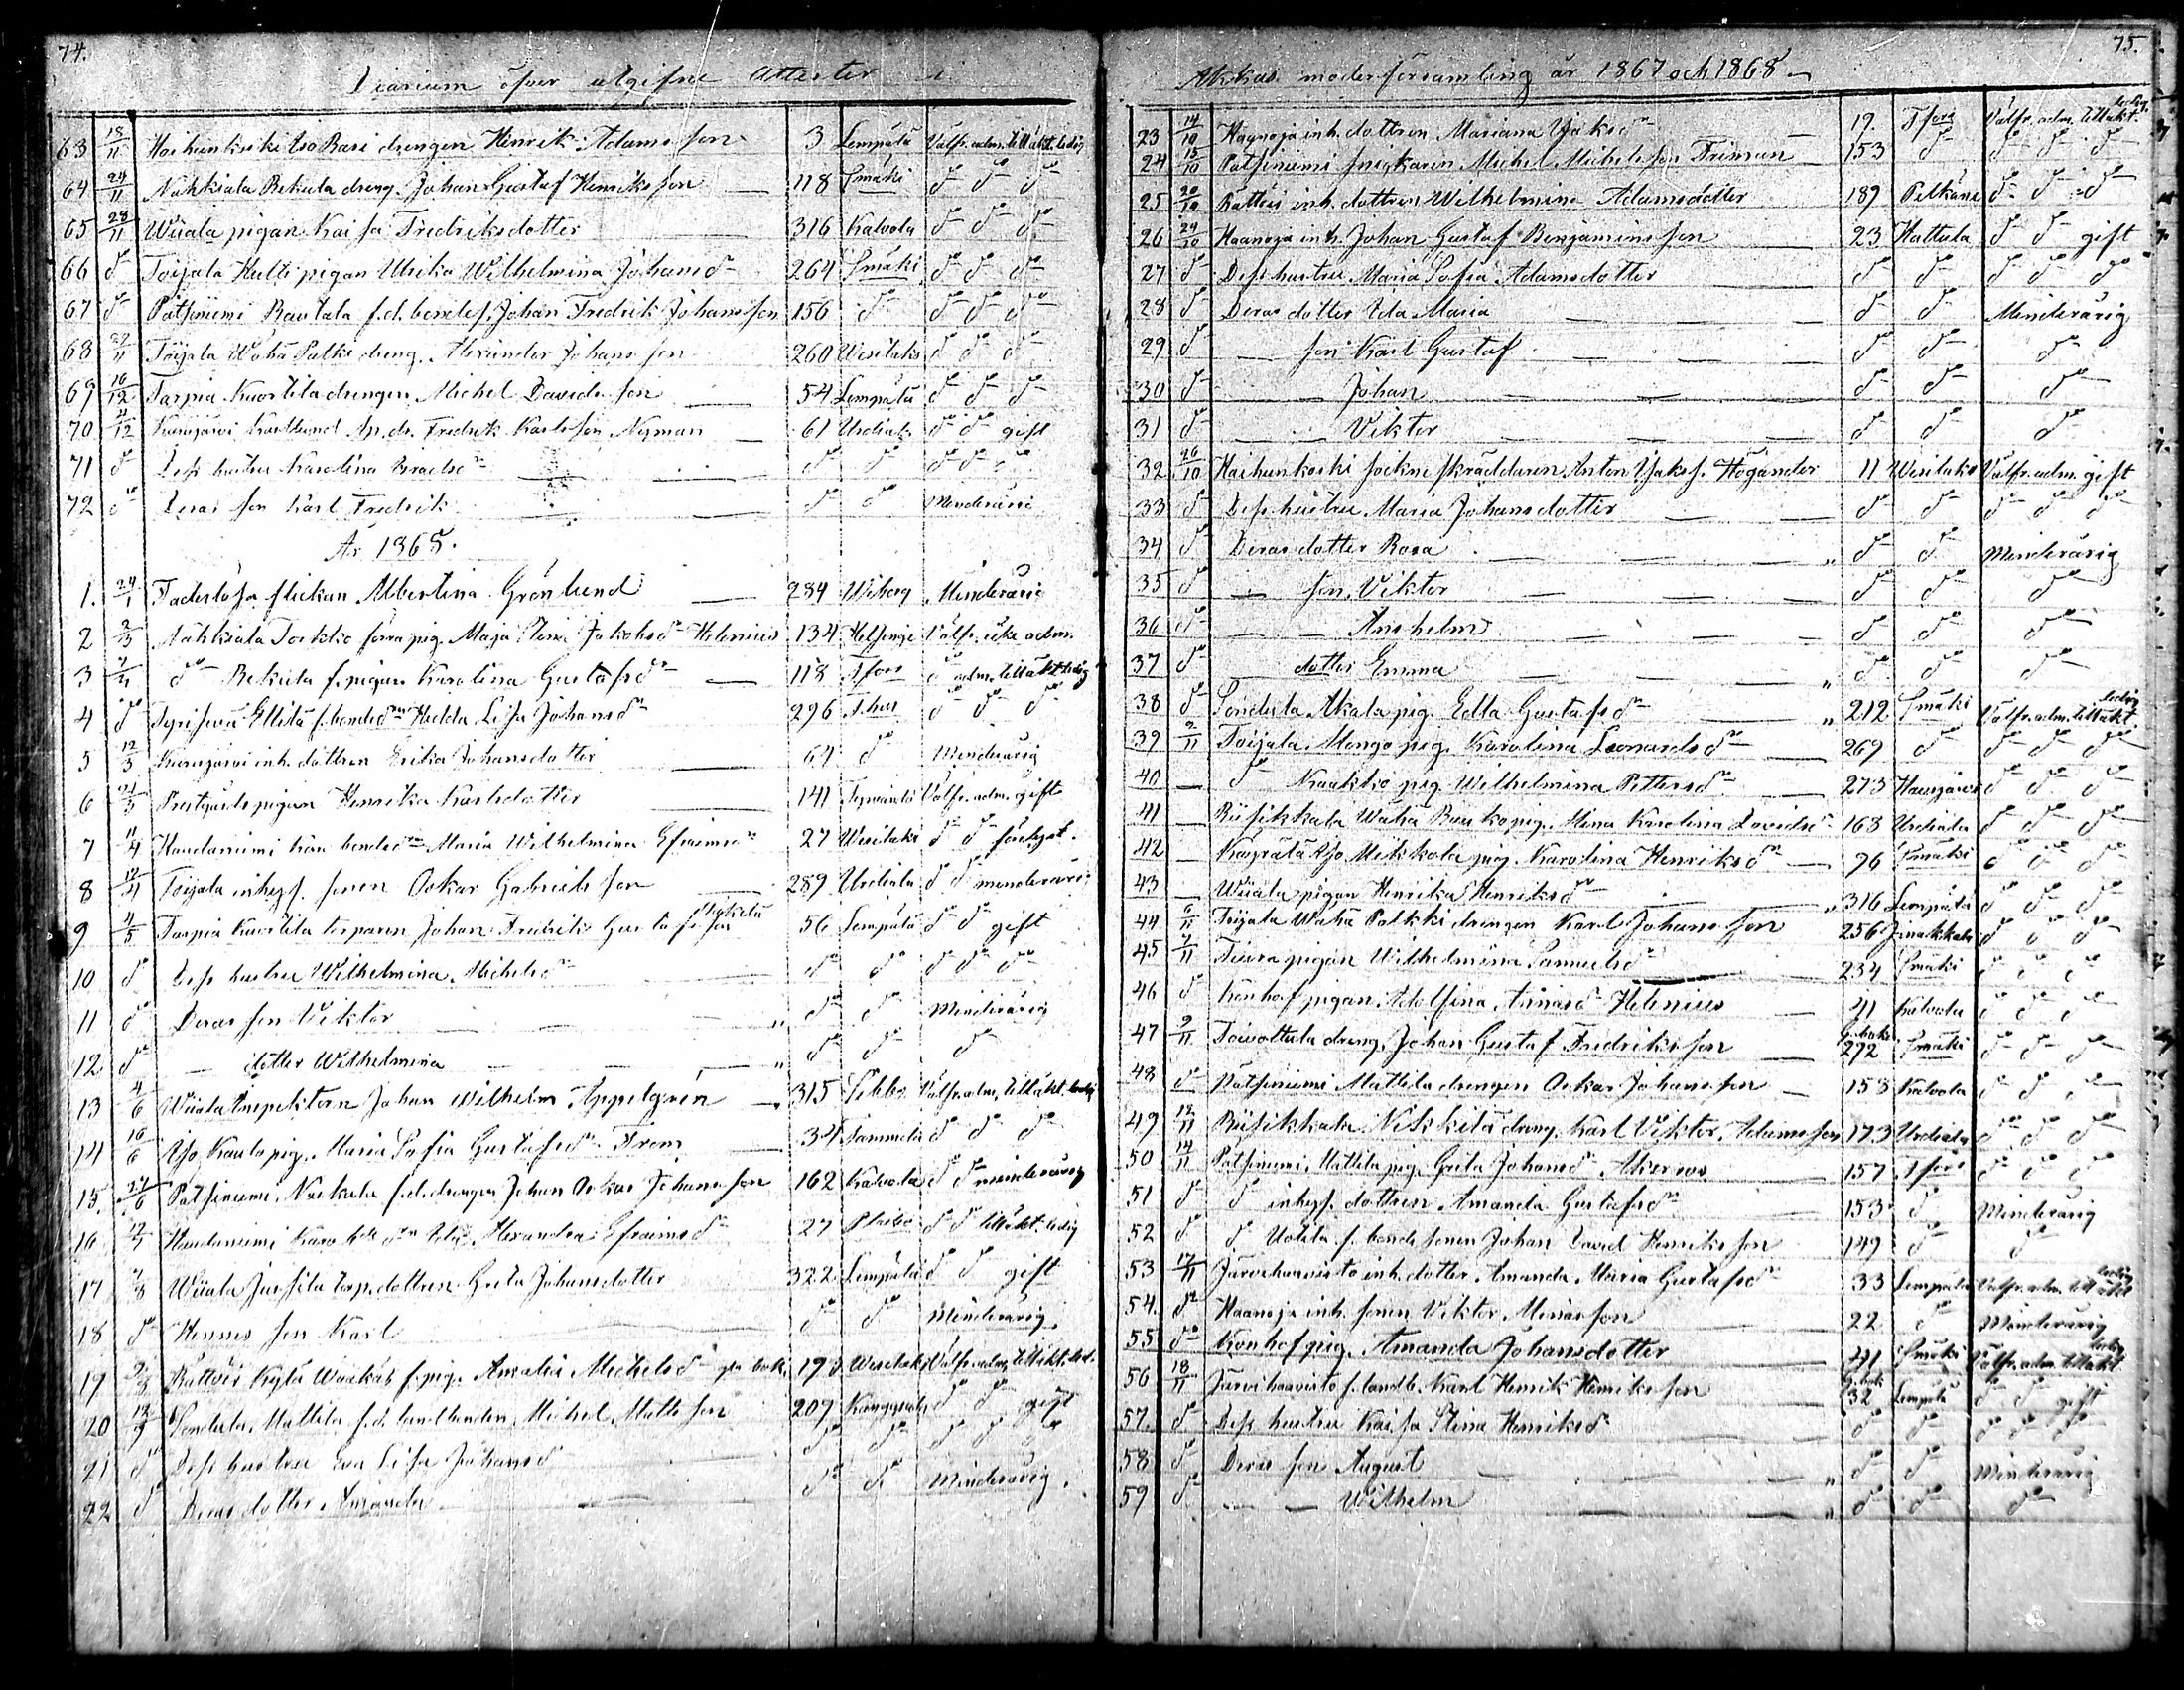 74.
Diarium öfver utgifne Attester i
63 18/11 Haihunkoski Iso Rasi drengen Henrik Adamsson 3 Lempälä Välfr. adm. till äkt. ledig
64 24/11 Nahkiala Bekula dreng. Johan Gustaf Henriksson 118 Smäki do do do
65 28/11 Wiiala pigan Kaisa Fredriksdotter 316 Kalvola do do do
66 do Toijala Hutti pigan Ulrika Wilhelmina Johansdr 264 Smäki do do do
67 do Patsiniemi Rautala f.d. bondes. Johan Fredrik Johansson 156 do do do do
68 29/11 Toijala Waha Palki dreng. Alexander Johansson 260 Wesilaks do do do
69 10/12 Tarpia Kuortila drengen Michel Davidsson 54 Lempälä do do do
70 11/12 Kurisjärvi Fredrik Karlsson Nyman 61 Urdiala do do gift
71 do Dess hustru Karolina Israelsdr do do do do do
72 do Deras son Karl Fredrik do do Minderårig
År 1868.
1. 24/1 Faderlösa flickan Albertina Grönlund 284 Wiborg Minderårig
2 3/3 Nahkiala Torkko förra pig. Maja Stina Jakobsdr Helenius 134 Helsinge Välfr. icke adm.
3 do Bekula f. pigan Karolina Gustafsdr 118 Tfors do adm. till äkt. ledig
4 do Hedda Lisa Johansdr 296 do do do
5 12/3 Kurisjärvi inh. dottren Erika Johansdotter 61 do Minderårig
6 21/3 Prestgårds pigan Henrika Karlsdotter 141 Välfr. adm. gift
7 11/4 Haudaniemi Maria Wilhelmina Efraimsdr 27 Wesilaks do do förlyst.
8 12/4 Toijala inhys. sonen Oskar Gabrielsson 289 Urdiala do do minderårig
9 4/5 Tarpia Kuortila torparen Johan Fredrik Gustafsson 56 Lempälä do do gift
10 do Dess hustru Wilhelmina Michelsdr do do do do do
11 do Deras son Viktor do do Minderårig
12 do — dotter Wilhelmina do do do
13 4/6 Wiiala Inspektorn Johan Wilhelm Appelgrén 315 Sibbo Välfr. adm. till äkt. ledig
14 10/6 Maria Sofia Gustafsdr 34 do do do
15. 27/6 Patsiniemi Johan Oskar Johansson 162 Kalvola do do minderårig
16 Haudaniemi Alexandra Efraimsdr 27 do do till äkt. ledig
17 Wiiala Jussila torp. dottren Greta Johansdotter 322 Lempälä do do gift
18 do Hennes son Karl do do Minderårig
19 Rättvis Kylä Amalia Michelsdr 193 Wesilaks Välfr. adm. till äkt. led.
20 12/9 Sondula Mattila f.d. landbonden Michel Mattsson 207 Kangasala do do gift
21 do Dess hustru Eva Lisa Johansdr do do do do do
22 do Deras dotter Amanda do do Minderårig.
75.
Akkas moderförsamling år 1867 och 1868
23 14/10 Haanoja inh. dottren Mariana Isaksdr 19. Tfors Välfr. adm. till äkt. ledig
24 15/10 Patsiniemi snickaren Michel Michelsson Friman 153 do do do do
25 20/10 Rättvis inh. dottren Wilhelmina Adamsdotter 189 Pelkäne do do do
26 24/10 Haanoja inh. Johan Gustaf Benjaminsson 23 Hattula do do gift
27 do Dess hustru Maria Sofia Adamsdotter do do do do do
28 do Deras dotter Ida Maria do do Minderårig
29 do — son Karl Gustaf do do do
30 do — Johan do do do
31 do — Viktor do do do
32 26/10 Haihunkoski sockne skräddaren Anton Isakss. Högander 11 Wesilaks Välfr. adm. gift
33 do Dess hustru Maria Johansdotter do do do do do
34 do Deras dotter Rosa do do Minderårig
35 do — son Viktor do do do
36 do — Anshelm do do do
37 do dotter Emma do do do
38 do Sondula Akala pig. Edla Gustafsdr 212 Smäki Välfr. adm. till äkt. ledig
39 2/11 Toijala Mango pig. Karolina Leonardsdr 269 do do do do
40 — do Naukko pig. Wilhelmina Pettersdr 273 Hausjärvi do do do
41 — Riisikkala Waha Bauko pig. Mina Karolina Davidsdr 163 Urdiala do do do
42 — Kägrälä Yjo Mikkola pig. Karolina Henriksdr 96 Smäki do do do
43 — Wiiala pigan Henrika Henriksdr 316 Lempälä do do do
44 6/11 Toijala Waha Palkki drengen Karl Johansson 256 Janakkala do do do
45 7/11 pigan Wilhelmina Samuelsdr 234 Smäki do do do
46 do Konhof pigan Adolfina Helenius 41 Kalvola do do do
47 9/11 Toivottula dreng. Johan Gustaf Fredriksson 272 Smäki do do do
48 do Patsiniemi Mattila drengen Oskar Johansson 158 Kalvola do do do
49 12/11 Riisikkala Nikkilä dreng. Karl Viktor Adamsson 173 Urdiala do do do
50 14/11 Patsiniemi Mattila pig. Greta Johansdr Akerroos 157 Tfors do do do
51 do do inhys. dottren Amanda Gustafsdr 153 do Minderårig
52 do do Uotila f. bonde sonen Johan David Henriksson 149 do do
53 17/11 Järvihaavisto inh. dotter Amanda Maria Gustafsdr 33 Lempälä Välfr. adm. till äkt ledig
54. do Haanoja inh. sonen Viktor 22 do Minderårig
55 do Konhof pig. Amanda Johansdotter 41 Smäki Välfr. adm. till äkt. ledig
56 18/11 Järvihaavisto f. landb. Karl Henrik Henriksson 32 Lempälä do do gift
57. do Dess hustru Kaisa Stina Henriksdr do do do do do
58 do Deras son August do do Minderårig
59 do — Wilhelm do do do